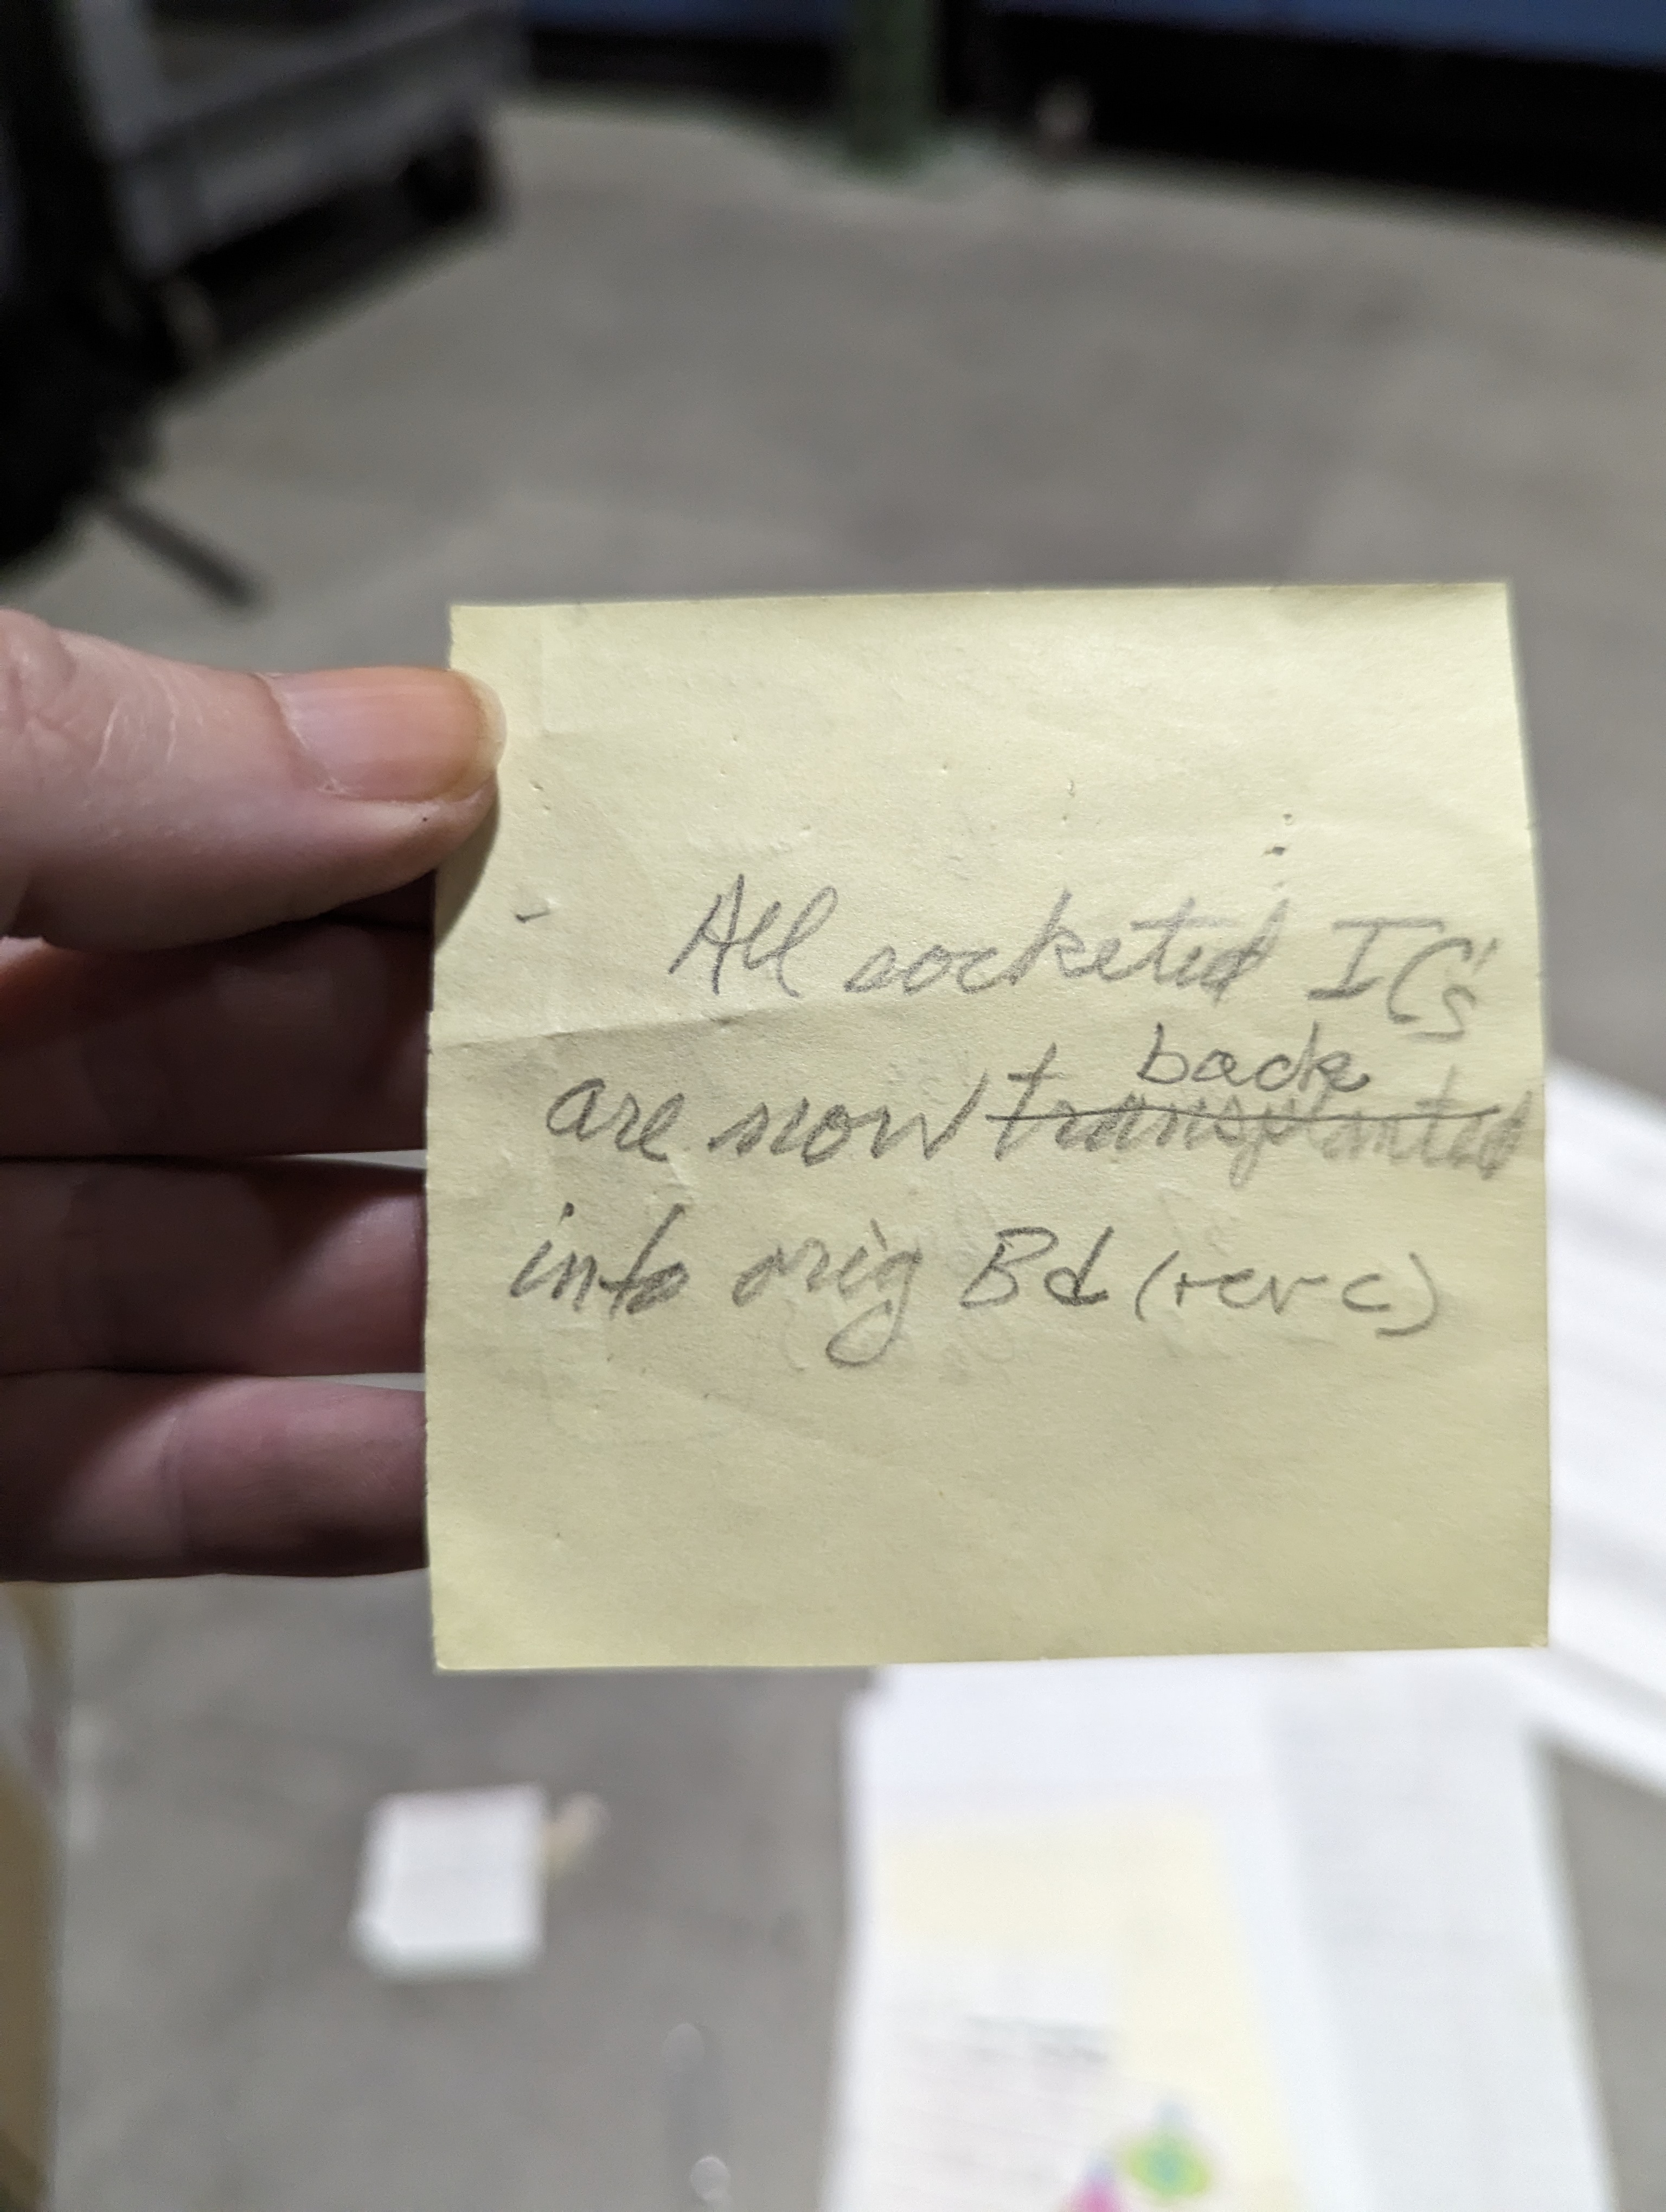 All socketed IC's
back
are now transplanted
into orig Bd (rev c)